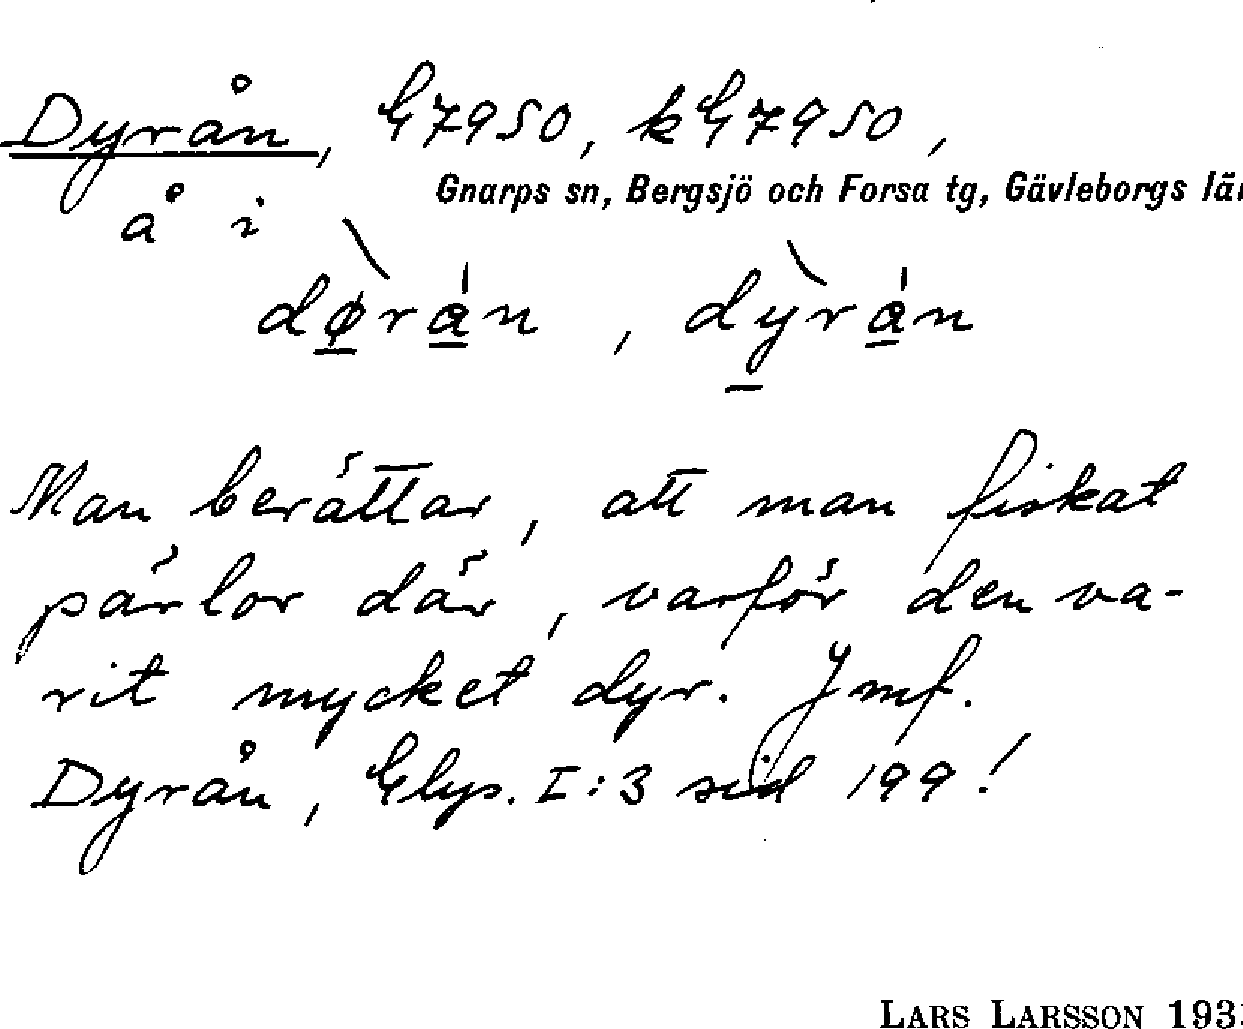 Dyrån, G7950, kG7950,
Gnarps sn, Bergsjö och Forsa tg, Gävleborgs lä
å i
dørán, dyrán
Man berättar, att man fiskat
pärlor där, varför den va-
rit mycket dyr. Jmf.
Dyrån, Elys. I:3 sid 199!
LARS LARSSON 193